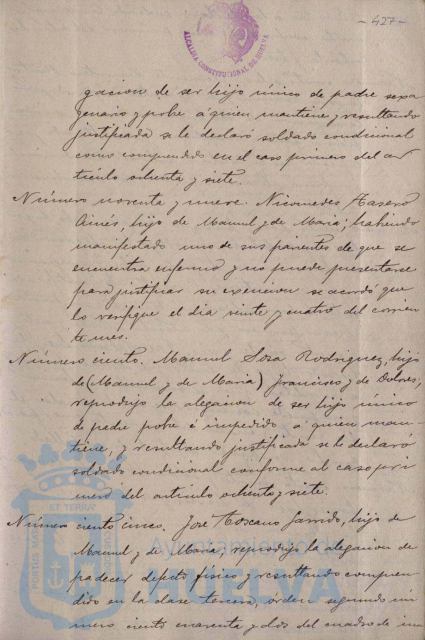 - 427 -
ALCALDIA CONSTITUCIONAL DE HUELVA
gacion de ser hijo único de padre sexa
genario y pobre á quien mantiene y resultando
justificada se le declaró soldado condicional
como comprendido en el caso primero del ar
tículo ochenta y siete.
Número noventa y nueve. Nicomedes
hijo de Manuel y de Maria; habiendo
manifestado uno de sus parientes de que se
encuentra enfermo y no puede presentarse
para justificar su exencion se acordó que
lo verifique el dia veinte y cuatro del corrien
te mes.
Número ciento. Manuel Sosa Rodriguez, hijo
de (Manuel y de Maria) Francisco y de Dolores,
reprodujo la alegacion de ser hijo único
de padre pobre é impedido á quien man-
tiene, y resultando justificada se le declaró
soldado condicional conforme al caso pri
mero del artículo ochenta y siete.
Número ciento cinco. José Toscano Garrido, hijo de
Manuel y de Maria, reprodujo la alegacion de
padecer defecto físico y resultando compren
dido en la clase tercera, órden segundo nú
mero ciento cuarenta y dos del cuadro de in
PORTUS MARIS ET TERRAE
Ayuntamiento de
HUELVA